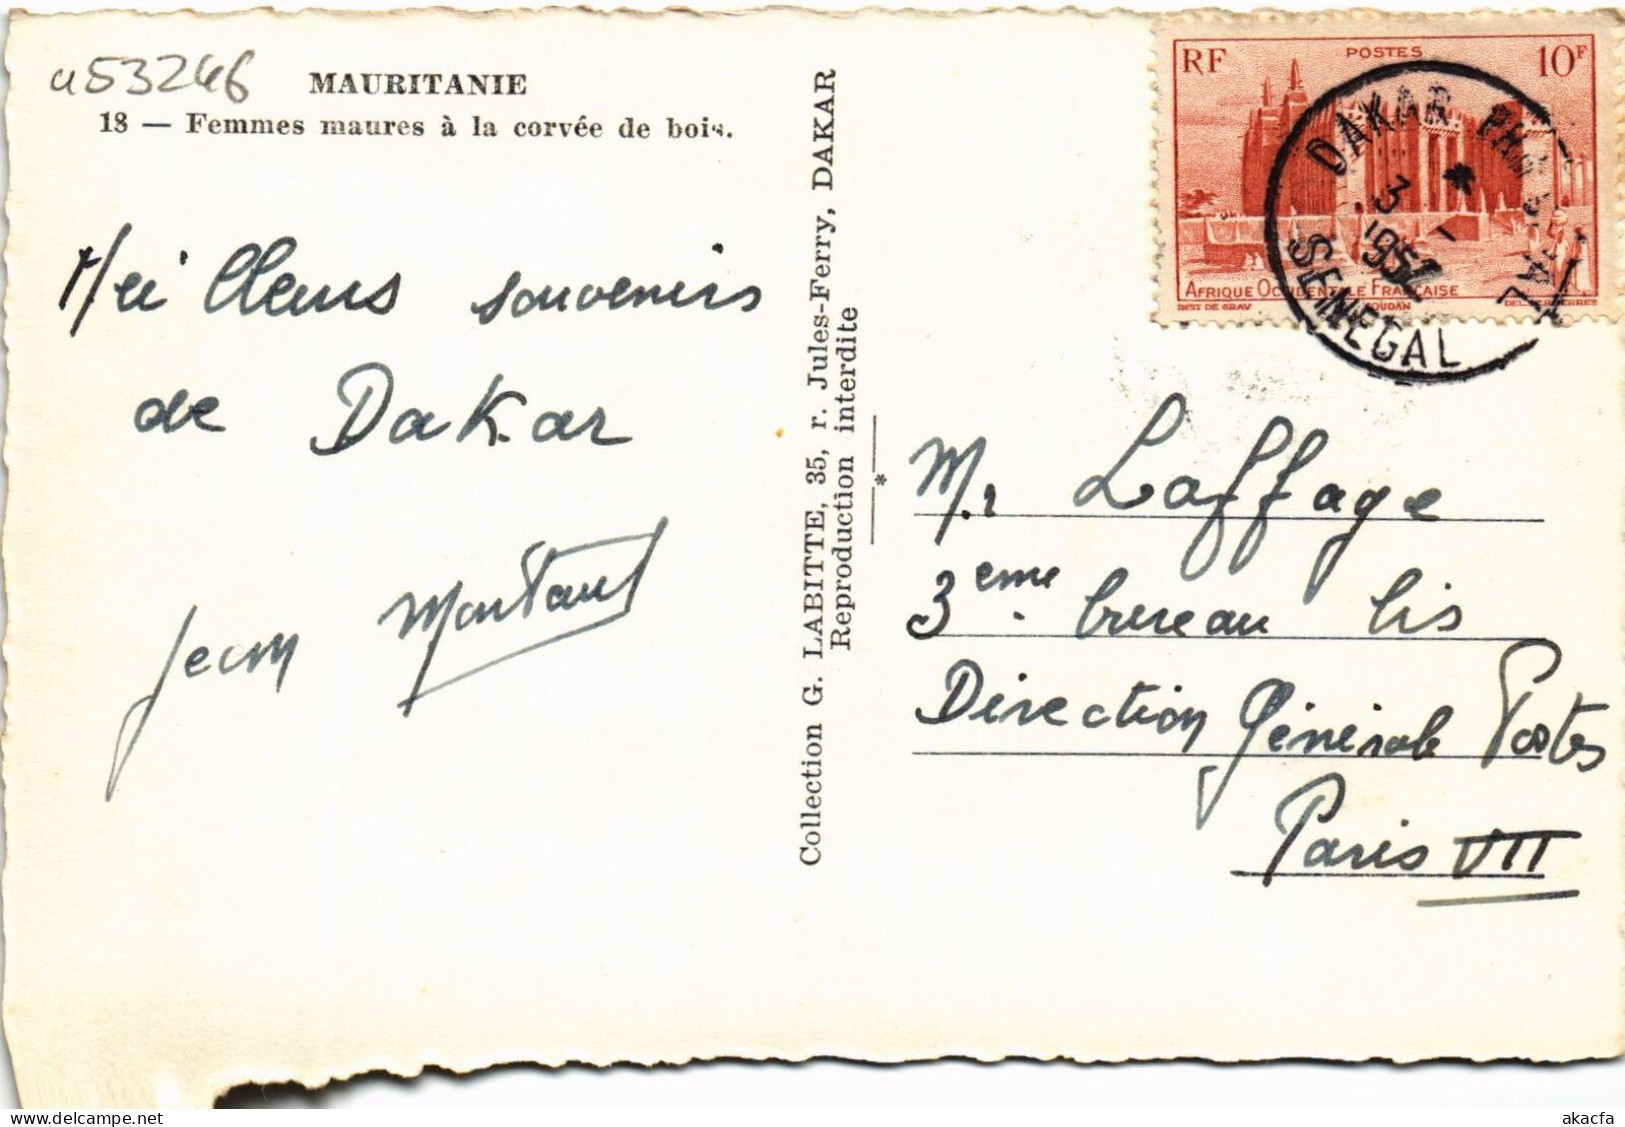 u53246
MAURITANIE
18 — Femmes maures à la corvée de bois.
Meilleurs souvenirs
de Dakar
Jean
Collection G. LABITTE, 35, r. Jules-Ferry, DAKAR
Reproduction interdite
*
RF
POSTES
10F
AFRIQUE OCCIDENTALE FRANÇAISE
INST DE GRAV
SOUDAN
DAKAR PHILATELIE
SENEGAL
Mr Laffage
3eme bureau bis
Direction Générale Postes
Paris VII
delcampe.net
akacfa